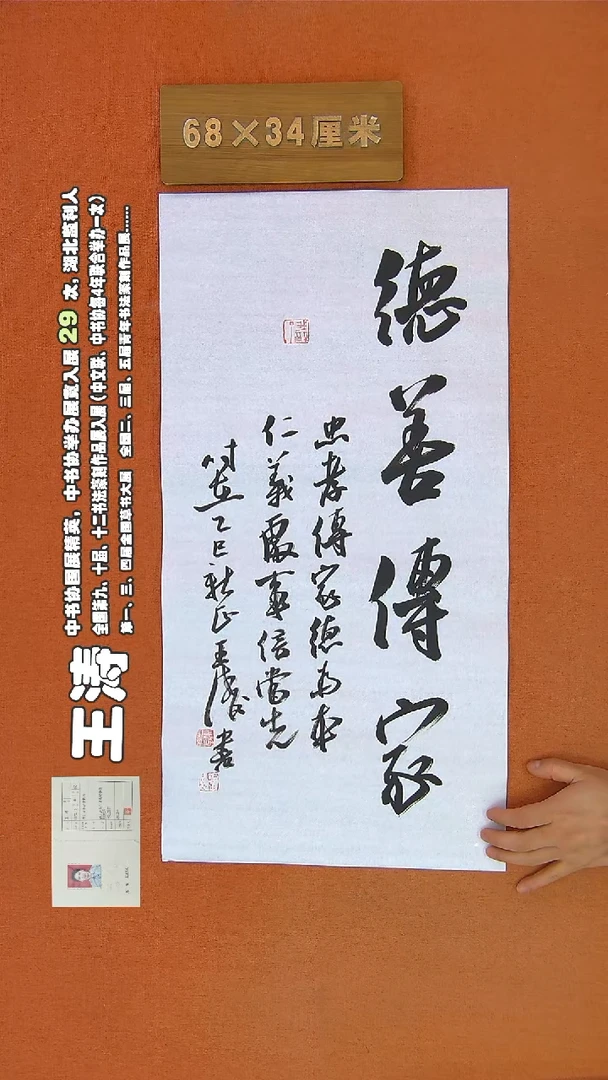 68×34厘米
德善傳家
忠孝傳家德为本
仁義處事信當先
时在乙巳新正王涛書
王涛
中书协国展精英，中书协举办展赛入展 29 次，湖北监利人
全国第九、十届、十二书法篆刻作品展入展（中文联、中书协每4年联合举办一次）
第一、三、四届全国草书大展 全国二、三届、五届青年书法篆刻作品展......